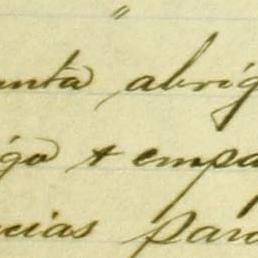 "
unta abrig
igo + empa
ncias para